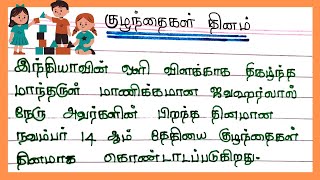 குழந்தைகள் தினம்
இந்தியாவின் ஒளி விளக்காக திகழ்ந்த
மாந்தருள் மாணிக்கமான ஜவஹர்லால்
நேரு அவர்களின் பிறந்த தினமான
நவம்பர் 14 ஆம் தேதியை குழந்தைகள்
தினமாக கொண்டாடப்படுகிறது.